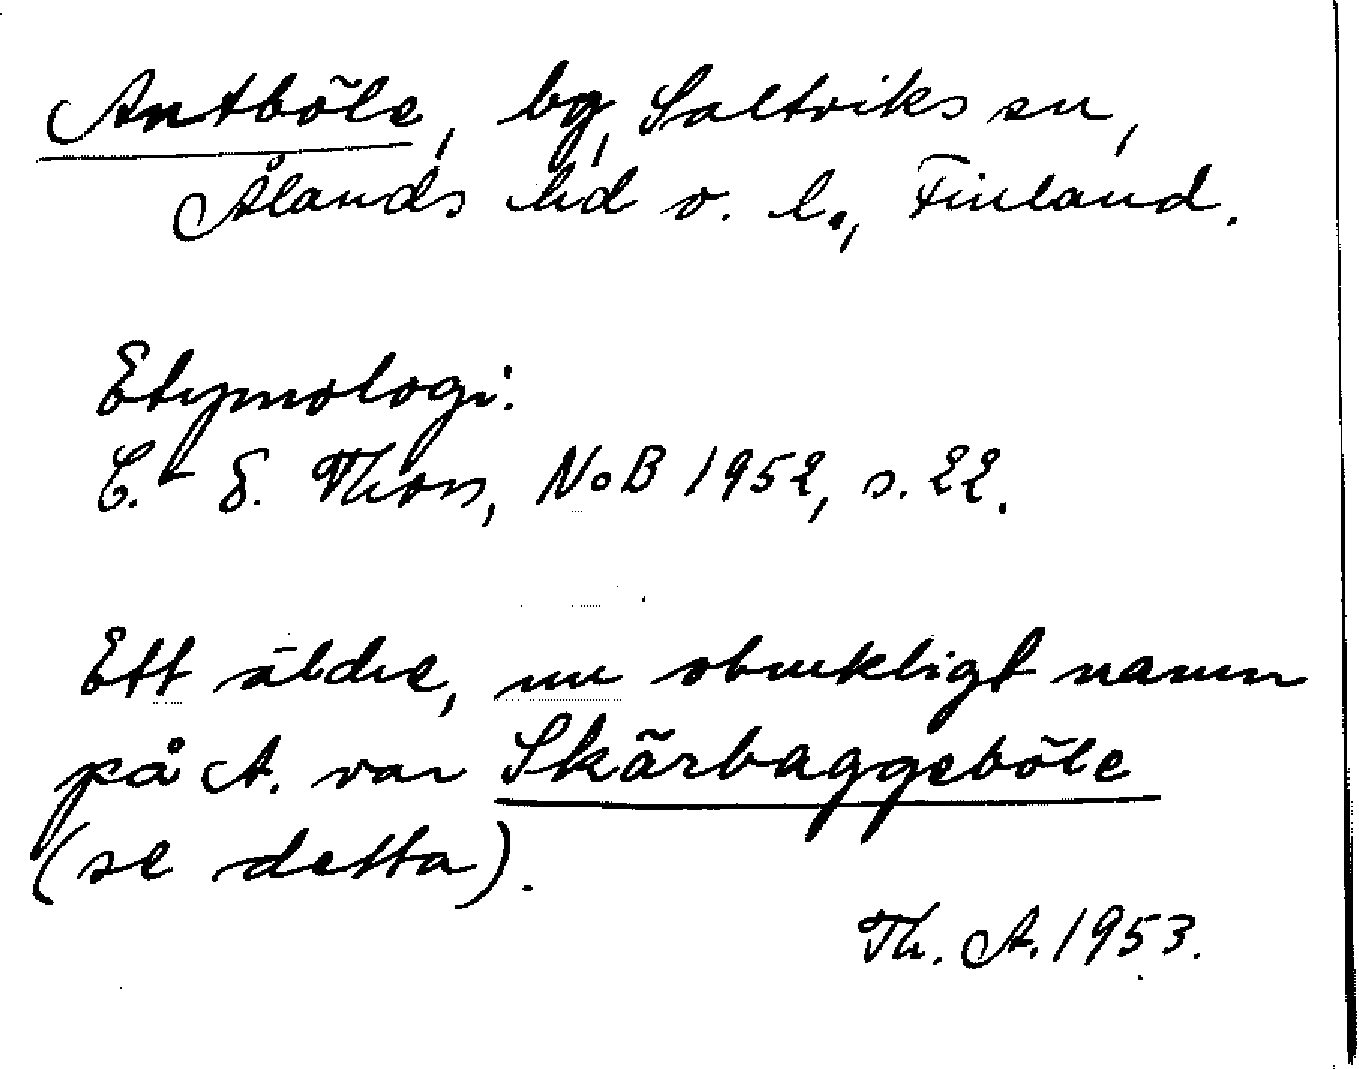 Antböle, bg, Saltviks sn,
Ålands hd o. l., Finland.
Etymologi:
C.-E. Thors, NoB 1952, s. 22.
Ett äldre, nu obrukligt namn
på A. var Skärbaggeböle
(se detta).
Th. A. 1953.